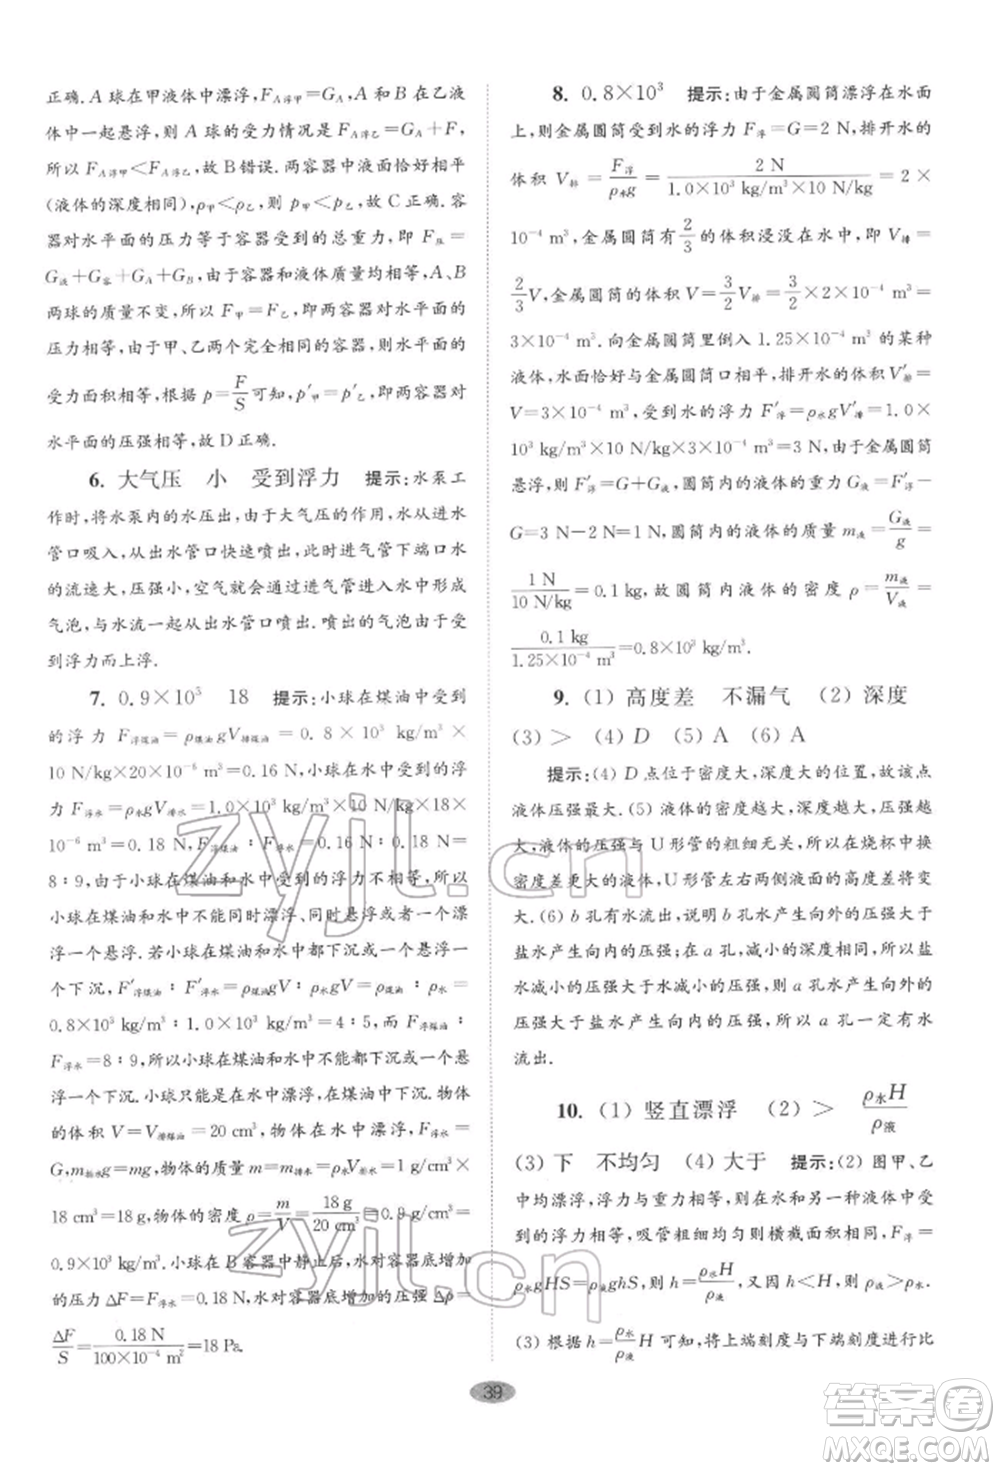 正确.A球在甲液体中漂浮,F_A浮甲=G_A,A和B在乙液
体中一起悬浮,则A球的受力情况是F_A浮乙=G_A+F,
所以F_A浮甲<F_A浮乙,故B错误.两容器中液面恰好相平
(液体的深度相同),ρ甲<ρ乙,则p甲<p乙,故C正确.容
器对水平面的压力等于容器受到的总重力,即F压=
G液+G容+G_A+G_B,由于容器和液体质量均相等,A、B
两球的质量不变,所以F甲=F乙,即两容器对水平面的
压力相等,由于甲、乙两个完全相同的容器,则水平面的
受力面积相等,根据p=F/S可知,p′甲=p′乙,即两容器对
水平面的压强相等,故D正确.
6. 大气压 小 受到浮力 提示:水泵工
作时,将水泵内的水压出,由于大气压的作用,水从进水
管口吸入,从出水管口快速喷出,此时进气管下端口水
的流速大、压强小,空气就会经过进气管进入水中形成
气泡,与水流一起从出水管口喷出.喷出的气泡由于受
到浮力而上浮.
7. 0.9×10³ 18 提示:小球在煤油中受到
的浮力F浮煤油=ρ煤油gV排煤油=0.8×10³ kg/m³×
10 N/kg×20×10⁻⁶ m³=0.16 N,小球在水中受到的浮
力F浮水=ρ水gV排水=1.0×10³ kg/m³×10 N/kg×18×
10⁻⁶ m³=0.18 N,F浮煤油∶F浮水=0.16 N∶0.18 N=
8∶9;由于小球在煤油和水中受到的浮力不相等,所以
小球在煤油和水中不能同时漂浮、同时悬浮或者一个漂
浮一个悬浮.若小球在煤油和水中受到浮力作用后都
下沉,F′浮煤油∶F′浮水=ρ煤油gV∶ρ水gV=ρ煤油∶ρ水=
0.8×10³ kg/m³∶1.0×10³ kg/m³=4∶5,而F浮煤油∶
F浮水=8∶9,所以小球在煤油和水中不能都下沉或一个悬
浮一个下沉.小球只能是在水中漂浮、在煤油中下沉.物体
的体积V=V排煤油=20 cm³,小球在水中漂浮,则F浮水=
G,m排水g=mg,物体的质量m=m排水=ρ水V排水=1 g/cm³×
18 cm³=18 g,物体的密度ρ=m/V=18 g/20 cm³=0.9 g/cm³
=0.9×10³ kg/m³.小球在B容器中静止后,水对容器底增加
的压力ΔF=F浮水=0.18 N,水对容器底增加的压强Δp=
ΔF/S=0.18 N/(100×10⁻⁴ m²)=18 Pa.
8. 0.8×10³ 提示:由于金属圆筒漂浮在水面
上,则金属圆筒受到水的浮力F浮=G=2 N,排开水的
体积V排=F浮/(ρ水g)=2 N/(1.0×10³ kg/m³×10 N/kg)=2×
10⁻⁴ m³,金属圆筒有2/3的体积浸没在水中,即V排=
2/3 V,金属圆筒的体积V=3/2 V排=3/2×2×10⁻⁴ m³=
3×10⁻⁴ m³;向金属圆筒里倒入1.25×10⁻⁴ m³的某种
液体,水面恰好与金属圆筒口相平,排开水的体积V′排=
V=3×10⁻⁴ m³,受到水的浮力F′浮=ρ水gV′排=1.0×
10³ kg/m³×10 N/kg×3×10⁻⁴ m³=3 N,由于金属圆筒
悬浮,则F′浮=G+G液,圆筒内的液体的重力G液=F′浮-
G=3 N-2 N=1 N,圆筒内的液体的质量m液=G液/g=
1 N/(10 N/kg)=0.1 kg,故圆筒内液体的密度ρ=m液/V液=
0.1 kg/(1.25×10⁻⁴ m³)=0.8×10³ kg/m³.
9. (1) 高度差 不漏气 (2) 深度
(3) > (4) D (5) A (6) A
提示:(4) D点位于密度大,深度大的位置,故该点
液体压强最大.(5) 液体的密度越大,深度越大,压强越
大,液体的压强与U形管的粗细无关,故在烧杯中换
密度差更大的液体,U形管左右两侧液面的高度差将变
大.(6) b孔有水流出,说明b孔水产生向外的压强大于
盐水产生向内的压强;在a孔,减小的深度相同,所以盐
水减小的压强大于水减小的压强,所以a孔水产生向外
的压强大于盐水产生向内的压强,所以a孔一定有水
流出.
10. (1) 竖直漂浮 (2) > ρ水H/ρ液
(3) 下 不均匀 (4) 大于 提示:(2) 图甲、乙
中均漂浮,浮力与重力相等,在水和另一种液体中受到
的浮力相等,吸管粗细均匀则横截面积相同,F浮=
ρ水gHS=ρ液ghS,则h=ρ水H/ρ液,又因h<H,所以ρ液>ρ水.
(3) 根据h=ρ水/ρ液 H可知,较上端刻度与下端刻度应比
39
zyjl.cn
zyjl.cn
答案圈
MXQE.COM